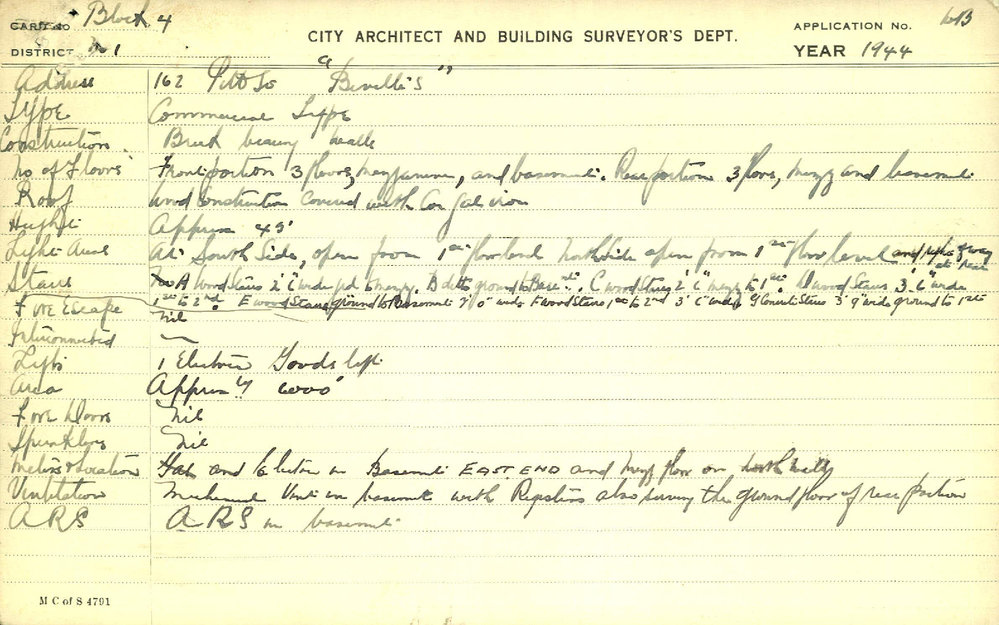 CARD NO Block 4
DISTRICT No 1
CITY ARCHITECT AND BUILDING SURVEYOR'S DEPT.
APPLICATION No. 6B
YEAR 1944
Address 162 Pitt St "Beville's"
Type Commercial Type
Construction. Brick bearing walls
No of Floors Front portion 3 floors, mezzanine, and basement. Rear portion 3 floors, mezz and basement
Roof Wood construction covered with Cor gal iron
Height Approx 45'
Light Areas At South Side, open from 1st floor and North side open from 1st floor level and of way at rear
Stairs A Wood Stairs 2'6" wide gd to mezz. B ditto ground to Base nt. C wood Stairs 2'6" mezz to 1st. D wood Stairs 3'6" wide
1st to 2nd. E wood Stairs ground to Basement 3'0" wide F wood Stairs 1st to 2nd 3'6" wide G Concrete Stairs 3'9" wide ground to 1st
Fire Escape nil
Interconnected —
Lifts 1 Electric Goods lift
Area Approx ly 6000'
Fire Doors Nil
Sprinklers Nil
Meters & Location Gas and Electric in Basement EAST END and mezz floor on North wall
Ventilation Mechanical Vent in basement with Registers also serving the ground floor of rear portion
ARS ARS in basement
M C of S 4791